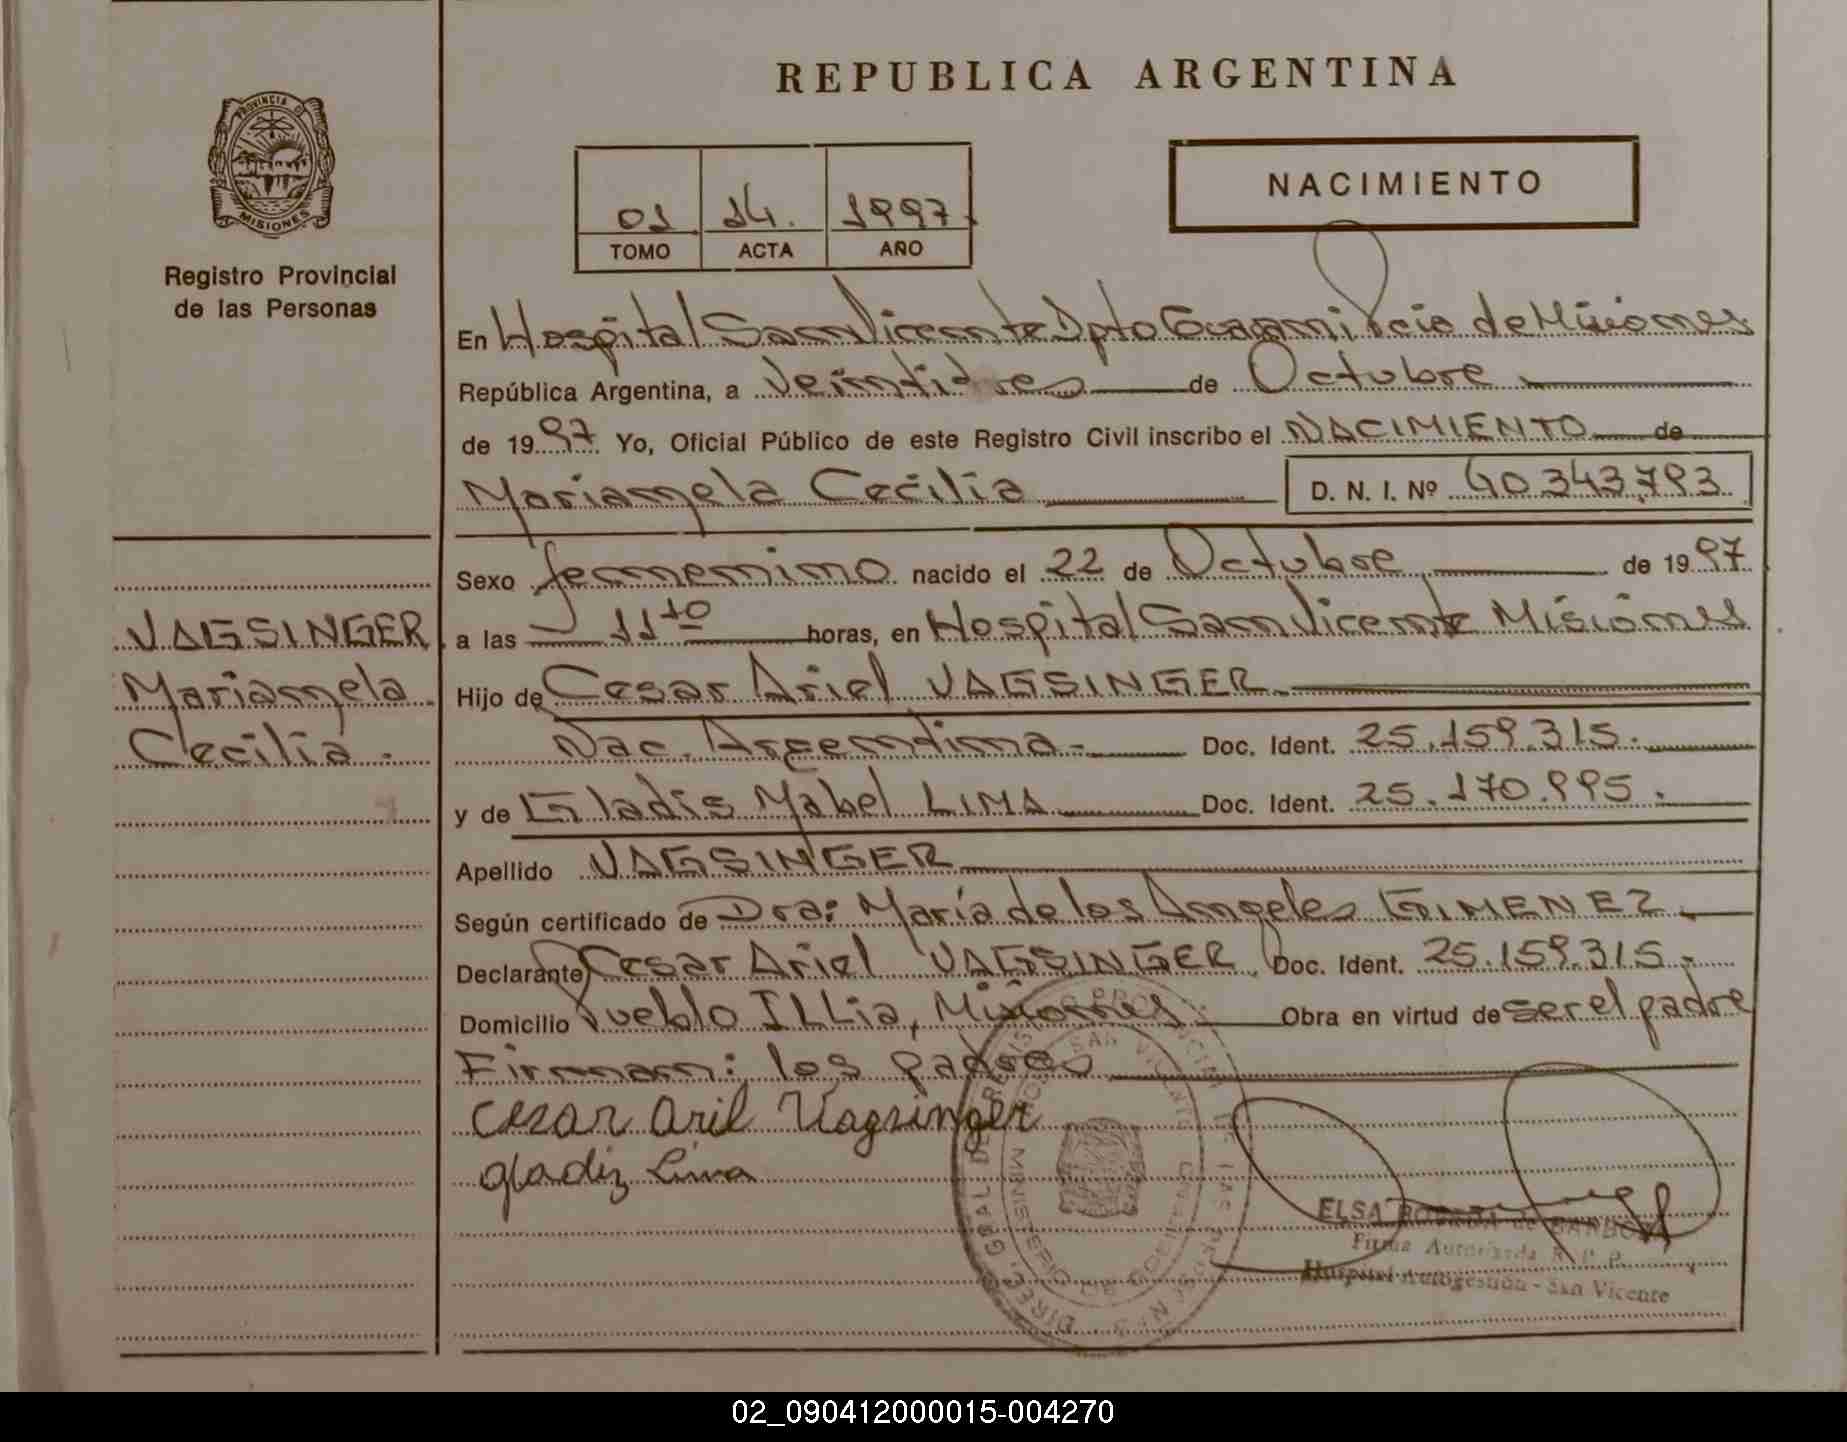 REPUBLICA ARGENTINA
PROVINCIA D
MISIONES
Registro Provincial
de las Personas
01 14. 1997.
TOMO ACTA AÑO
NACIMIENTO
En Hospital San Vicente Dpto Guarani Pcia de Misiones
República Argentina, a Veintidres de Octubre
de 1997 Yo, Oficial Público de este Registro Civil inscribo el NACIMIENTO de
Mariangela Cecilia D. N. I. Nº 40.343.793
VAGSINGER
Mariangela
Cecilia.
Sexo femenino nacido el 22 de Octubre de 1997
a las 11 10 horas, en Hospital San Vicente Misiones
Hijo de Cesar Ariel VAGSINGER
Nac. Argentina.- Doc. Ident. 25.159.315.
y de Gladis Mabel LIMA Doc. Ident. 25.170.995.
Apellido VAGSINGER
Según certificado de Dra: María de los Angeles GIMENEZ
Declarante Cesar Ariel VAGSINGER Doc. Ident. 25.159.315.-
Domicilio Pueblo ILLia, Misiones Obra en virtud de ser el padre
Firman: los padres
Cesar Ariel Vagsinger
gladiz Lima
SAN VICENTE
MINISTERIO DE GOBIERNO
ELSA de BARBOZA
Firma Autorizada R. P. P.
Hospital Autogestión - San Vicente
02_090412000015-004270